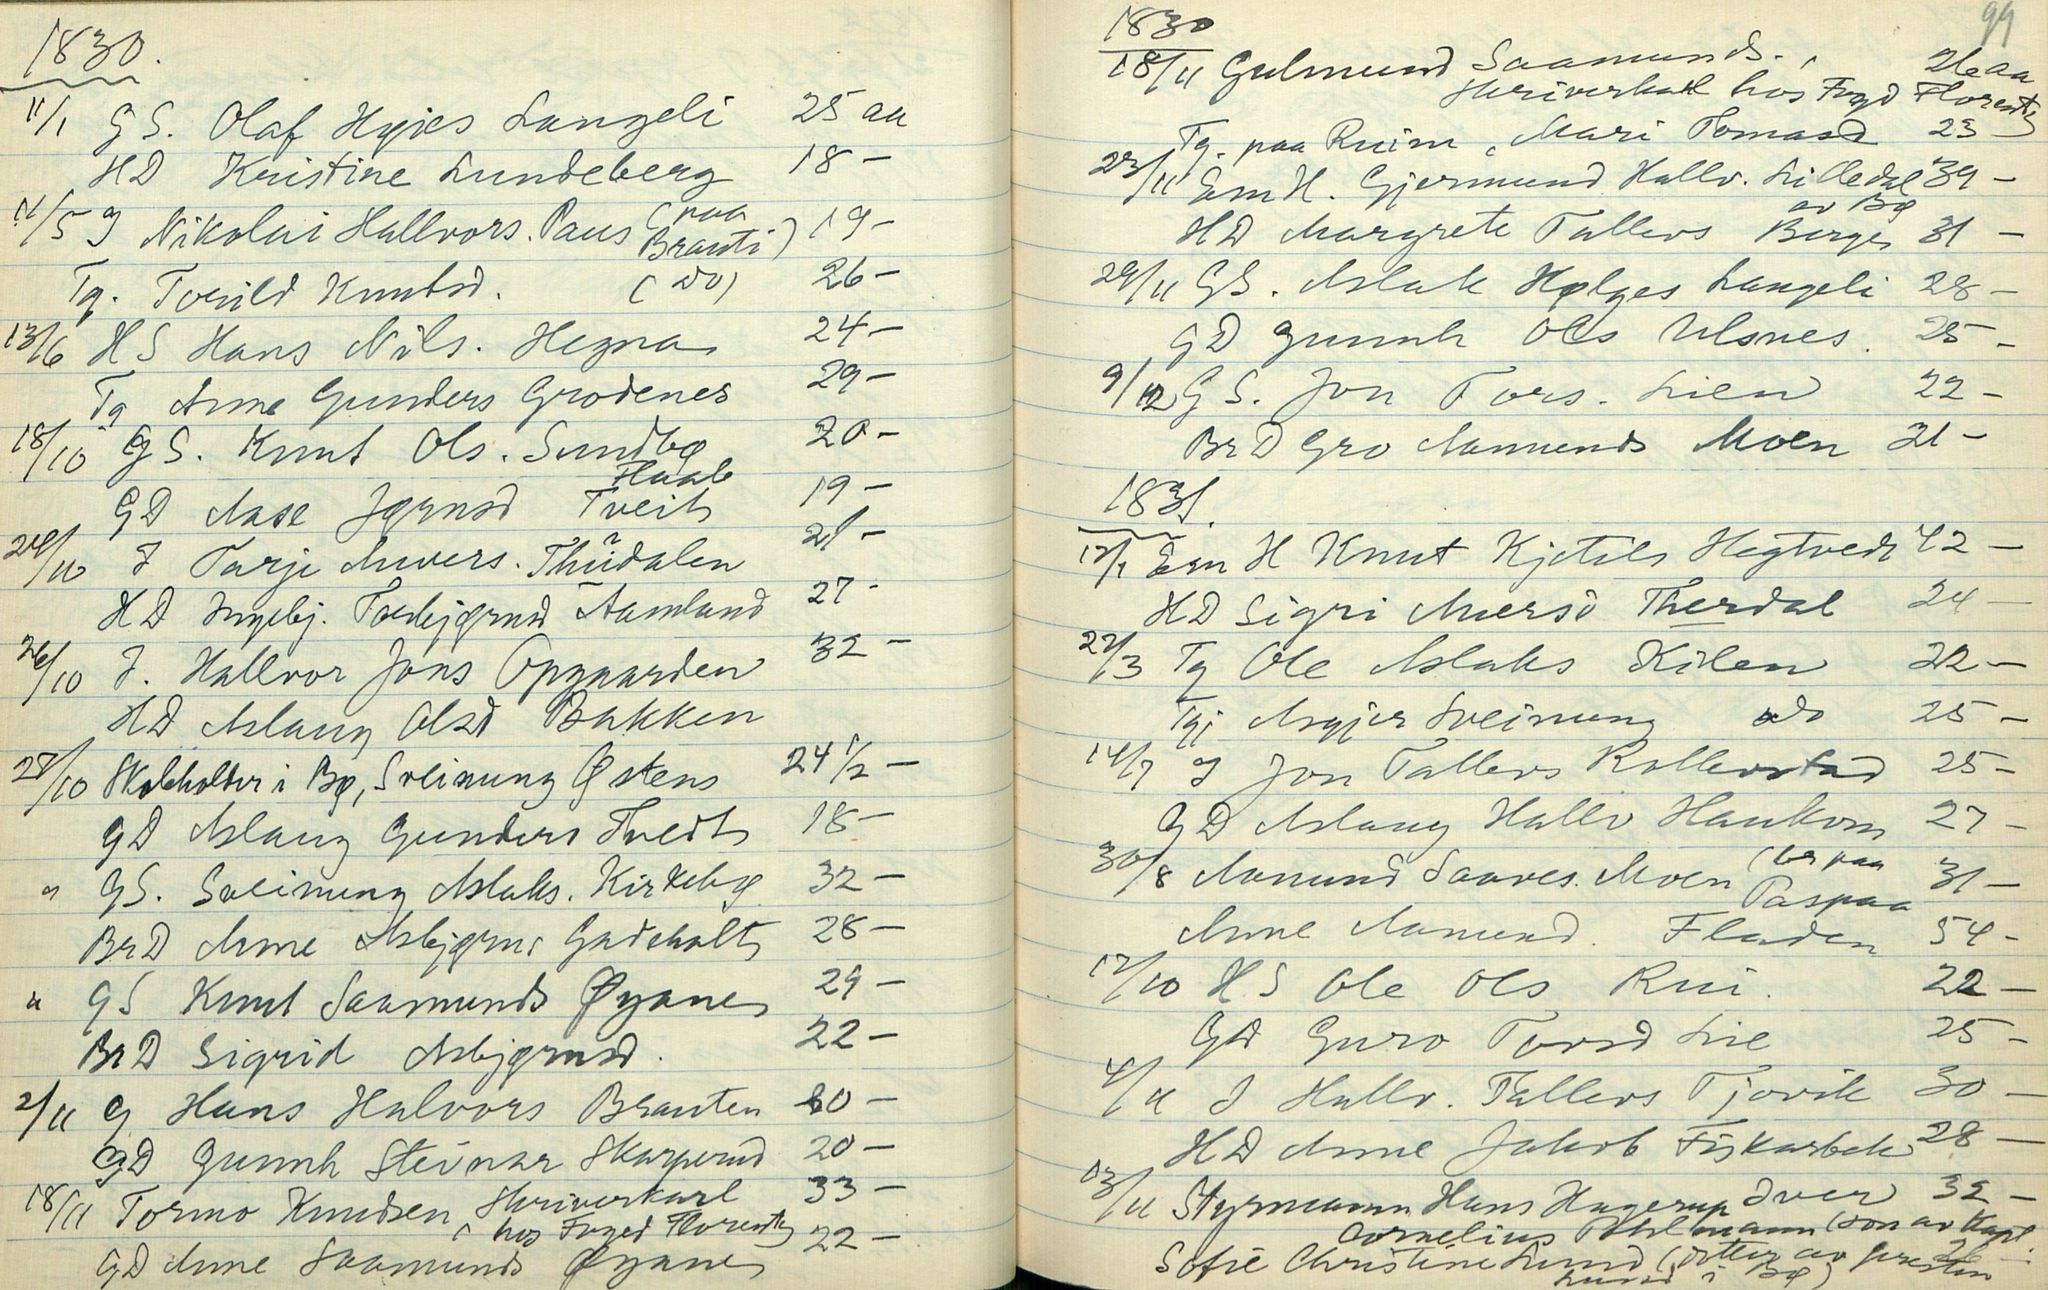 1830.
11/1 G S. Olaf Høies Langeli 25 aa
HD Kristine Lundeberg 18 –
11/5 I Nikolai Hallvors. Paus (paa Brauti) 19 –
Tg. Torild Knutsd. (do) 26 –
13/6 HS Hans Nils. Hegna 24 –
Tg Anne Gunders Grodenes 29 –
18/10 GS. Knut Ols. Sundbø 20 –
GD Aase Jørnsd Haatve Tveit 19 –
24/10 I Tarje Anvers. 21 –
HD Ingebj. Torbjørnsd Aamland 27 –
26/10 I. Hallvor Jons Opgaarden 32 –
HD Aslaug Olsd Bakken
28/10 Skoleholder i Bø, Sveinung Østens 24 1/2 –
GD Aslaug Gunders Tvedt 18 –
" GS. Sveinung Aslaks. Kirkebø 32 –
BrD Anne Asbjørns Gadeholt 28 –
" GS Knut Saamunds Øyane 29 –
BrD Sigrid Asbjørnsd. 22 –
2/11 G Hans Halvors Brauten 20 –
GD Gunnh Steinar Skarperud 20 –
18/11 Tormo Knudsen Skriverkarl 33 –
(hos Foged Florentz
GD Anne Saamunds Øyane 22 –
99
1830
18/11 Gulmund Saamunds. 26 aa
Skriverkarl hos Fogd Florentz
Tg. paa Ruim, Mari Tomasd 23 –
23/11 Em H. Gjermund Hallv. Lilledal av Bø 39 –
HD Margrete Tallevs Berge 31 –
29/11 GS. Aslak Helges Langeli 28 –
GD Gunnh Ols Ulsnes. 25 –
9/12 G S. Jon Tors. Lien 22 –
BrD Gro Aamunds Moen 21 –
1831.
12/1 Em H Knut Kjetils Hegtvedt 42 –
HD Sigri Aversd Therdal 24 –
22/3 Tg Ole Aslaks Kilen 22 –
Tgj Asgjer Sveinung do 25 –
14/7 I Jon Tallevs Rollevstad 25 –
GD Aslaug Hallv Haukom 27 –
30/8 Aamund Saaves. Moen (bor paa 31 –
Anne Aamund. Fladen 54 –
12/10 HS Ole Ols Rui. 22 –
GD Guro Torsd Lie 25 –
4/11 I Hallv. Tallevs Tjovik 30 –
HD Anne Jakob Fiskarbek 28 –
13/11 Styrmann Hans Hagerup Iver 32 –
Cornelius Pohlmann (søn av Kapt.
Sofie Christine Lund (dotter av presten 26
Lund i Bø)